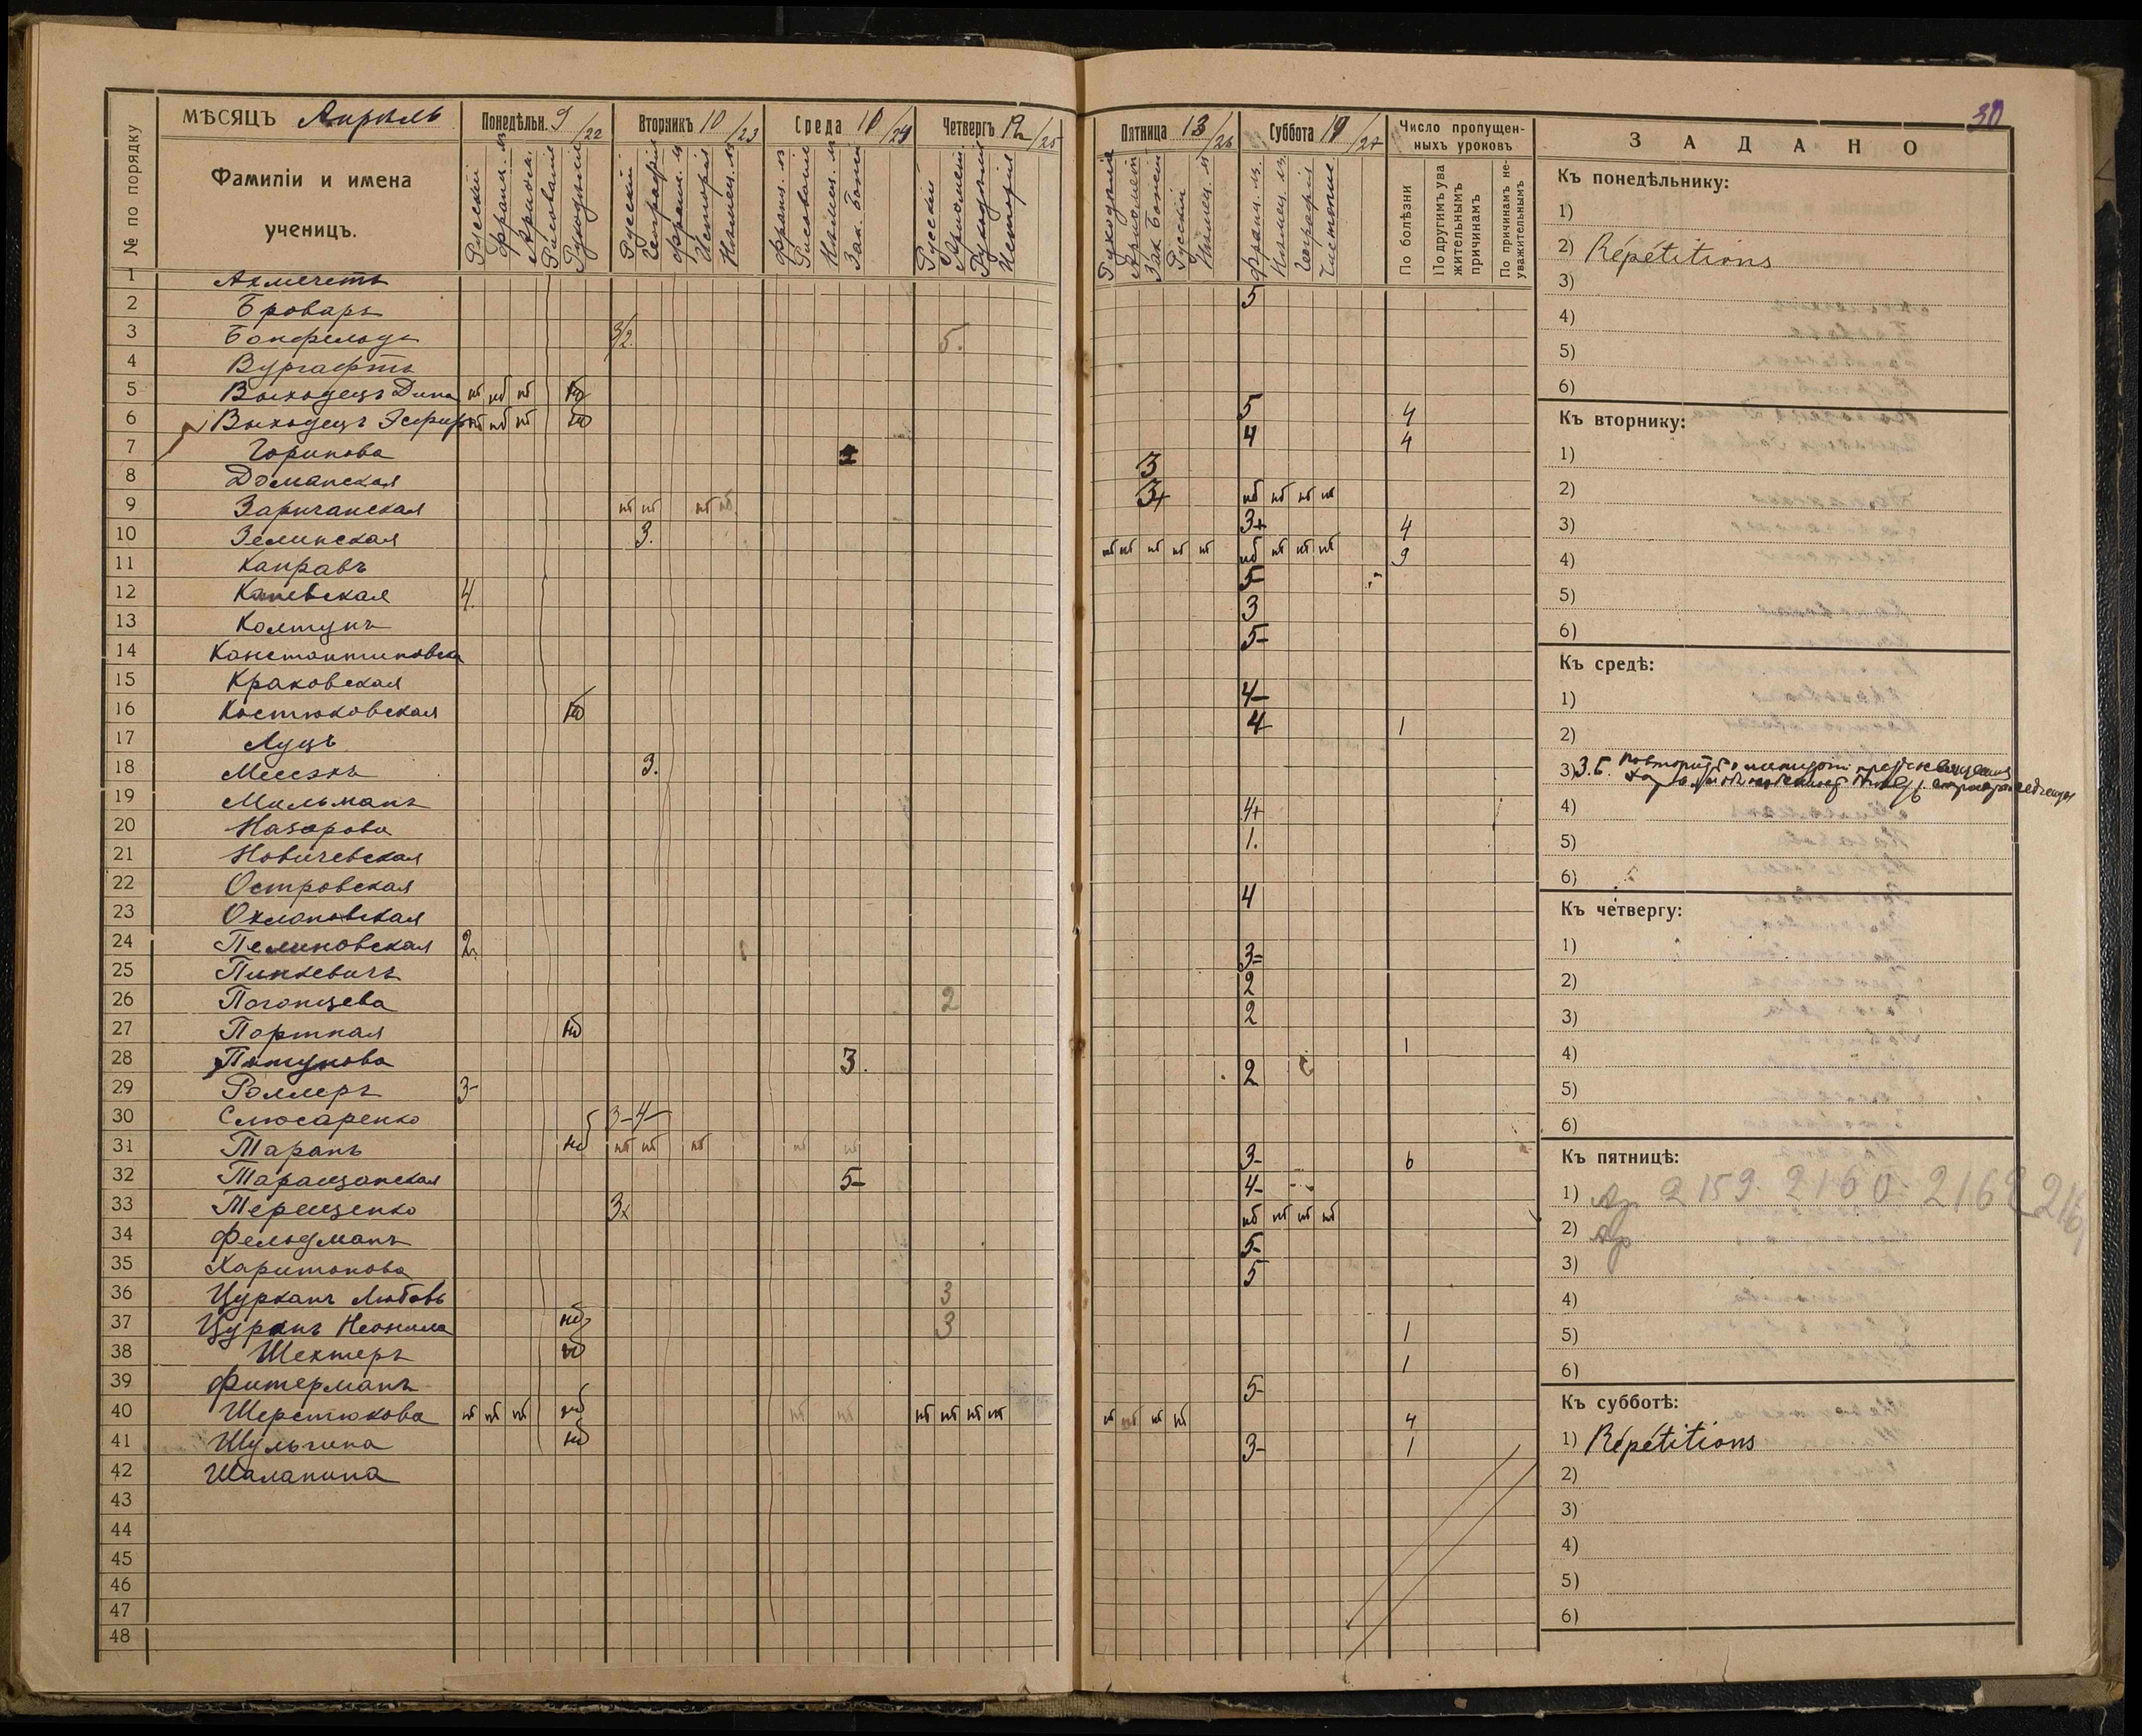 30
МѢСЯЦЪ Апрѣль
№ по порядку
Фамиліи и имена
ученицъ.
Понедѣльн. 9/22
Русскій
Франц. яз
Рисованіе
Рукодѣліе
Вторникъ 10/23
Русскій
Географія
Франц. я
Исторія
Нѣмец. яз
Среда 10/24
Франц. яз
Рисованіе
Нѣмец. яз
Зак. Божій
Четвергъ 12/25
Русскій
Арифмет.
Рукодѣліе
Исторія
Пятница 13/26
Рукодѣліе
Арифмет
Зак Божій
Русскій
Нѣмец. яз
Суббота 14/27
Франц. яз.
Нѣмец. яз.
Географія
Чистопис
Число пропущен-
ныхъ уроковъ
По болѣзни
По другимъ ува
жительнымъ
причинамъ
По причинамъ не-
уважительнымъ
1 Ахмечетъ
2 Броваръ 5
3 Бонфельдъ 3/2. 5.
4 Вургафтъ
5 Выходецъ Дина нб нб нб нб 5 4
6 Выходецъ Эсфирь нб нб нб нб 4 4
7 Горинова 3
8 Доманская 3+ нб нб нб нб
9 Заричанская нб нб нб нб 3+ 4
10 Зелинская 3. нб нб нб нб нб нб нб нб нб 9
11 Каправъ 5-
12 Каневская 4. 3
13 Колтунъ 5-
14 Константиновска
15 Краковская 4-
16 Костюковская нб 4 1
17 Луцъ
18 Меезъ 3.
19 Мильманъ 4+
20 Назарова 1.
21 Новичевская
22 Островская 4
23 Охлановская
24 Пелиновская 2. 3=
25 Пинкевичъ 2
26 Погонцева 2 2
27 Портная нб 1
28 Пятунова 3. 2
29 Роллеръ 3-
30 Слюсаренко 3- 4-
31 Таранъ нб нб нб нб нб нб 3- 6
32 Таращанская 5- 4-
33 Терещенко 3 нб нб нб нб
34 Фельдманъ 5-
35 Харитонова 5
36 Цурканъ Любовь 3
37 Цурканъ Неонила нб 3 1
38 Шехтеръ нб 1
39 Фитерманъ 5-
40 Шерстюкова нб нб нб нб нб нб нб нб нб нб нб нб нб нб 4
41 Шульгина нб 3- 1
42 Шаланина
43
44
45
46
47
48
ЗАДАНО
Къ понедѣльнику:
1)
2) Répétitions
3)
4)
5)
6)
Къ вторнику:
1)
2)
3)
4)
5)
6)
Къ средѣ:
1)
2)
3) З.Б.
4)
5)
6)
Къ четвергу:
1)
2)
3)
4)
5)
6)
Къ пятницѣ:
1) Ар 2159. 2160 2162 216
2) Ар
3)
4)
5)
6)
Къ субботѣ:
1) Répétitions
2)
3)
4)
5)
6)